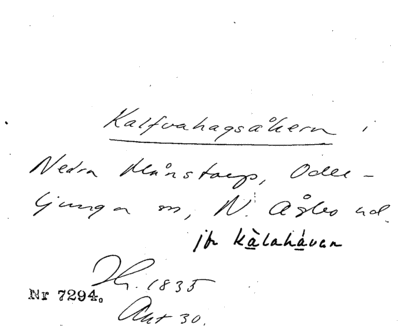 Kalfvahagsåkern i
Nedra Månstorp, Oder-
ljunga sn, N. Åsbo hd.
jfr kàlahávan
1835
Nr 7294.
Akt 30.